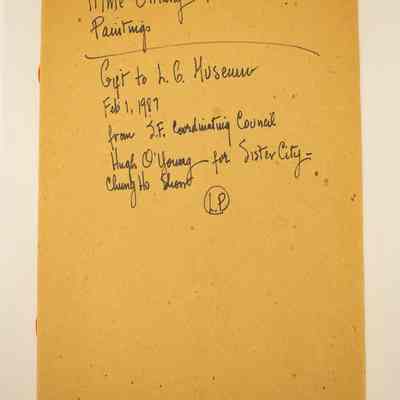 Paintings
Gift to L.G. Museum
Feb 1, 1987
from S.F. Coordinating Council
Hugh O'Young - for Sister City -
Chung Ho
LP